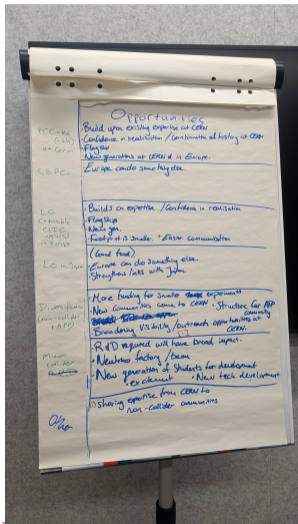 Opportunities
• Build upon existing expertise at CERN
• Confidence in realisation / Continuation of history at CERN
Flagship
New generations at CERN & in Europe.
CEPC
Europe can do something else
LC
• Builds on expertise / Confidence in realisation
• Flagships
• New gen.
• Footprint is smaller • Easier communication
in Europe
LC in Japan
• Europe can do something else.
• Strengthens links with Japan
• More funding for smaller experiments
• New communities come to CERN • Structure for APP community
• Broadening visibility / outreach opportunities at CERN.
Muon collider
• R&D required will have broad impact.
• Neutrino factory / beam
• New generation of students for development
• excitement • New tech development
Sharing expertise from CERN to
non-collider communities